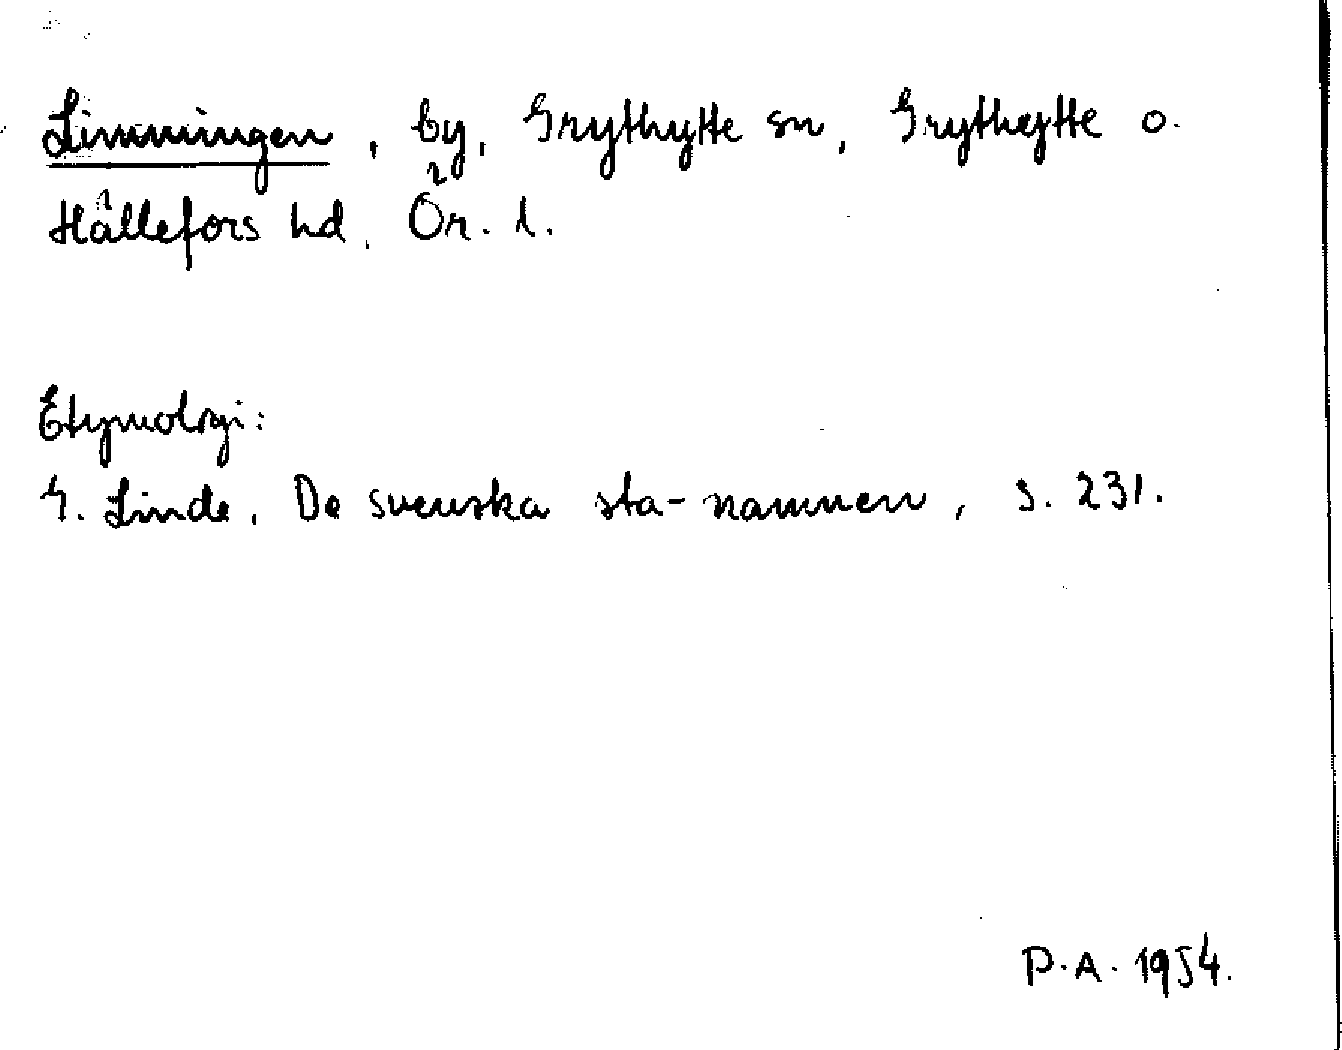 Limmingen, by, Grythytte sn, Grythytte o.
Hällefors hd, Ör. l.
Etymologi:
G. Linde, De svenska sta-namnen, s. 231.
P.A. 1954.